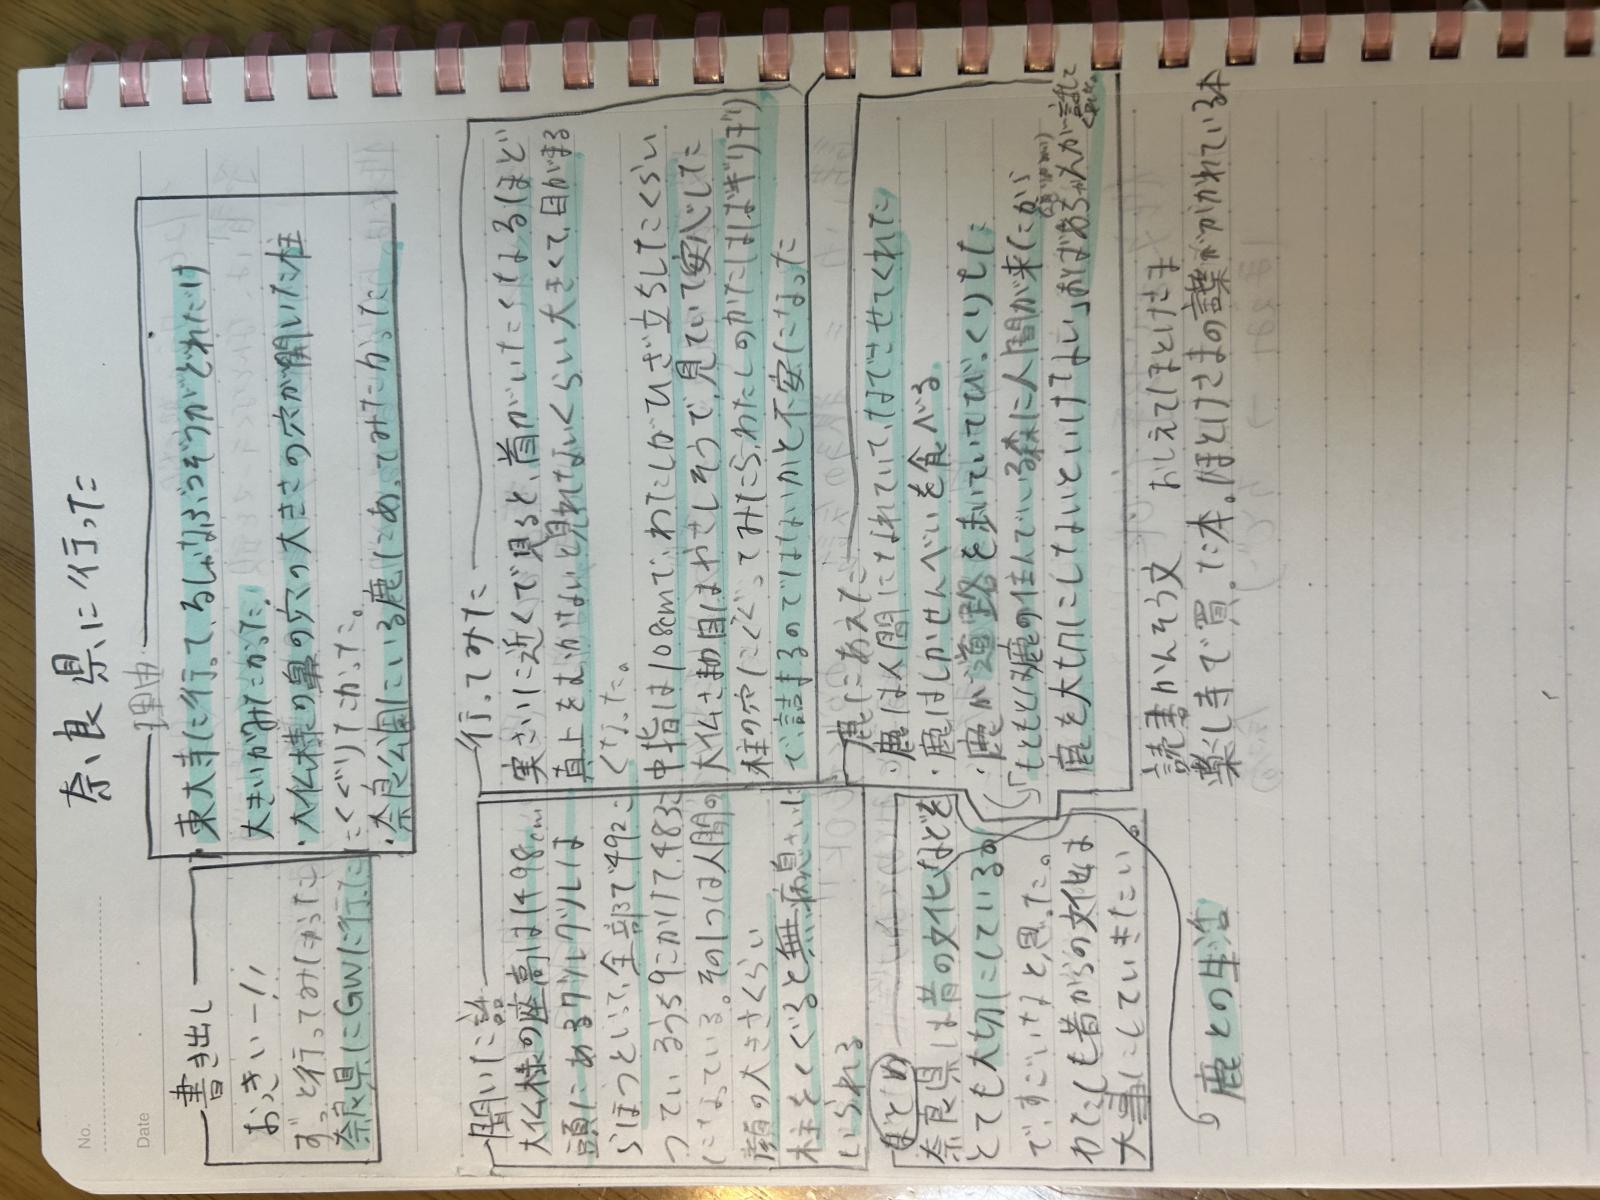 No.
Date
奈良県に行った
書き出し
おっきいー!!
ずっと行ってみたかった
奈良県にGWに行った
理由
・東大寺に行って、るしゃなぶつぞうがどれだけ
大きいかみたかった。
・大仏様の鼻の穴の大きさの穴が開いた柱
にくぐりたかった。
・奈良公園にいる鹿にあってみたかった
聞いた話
大仏様の座高は1498cm
頭にあるクルクルは
らほつといって、全部で492こ
ついているうち9こかけて483こ
になっている。その1つは人間の
顔の大きさくらい
柱をくぐると無病息さいに
いられる
行ってみた
実さいに近くで見ると、首がいたくなるほど
真上をむかないと見れないくらい大きくて、目がまる
くなった。
中指は108cmで、わたしがひざ立ちしたくらい
大仏さまの目はやさしそうで、見ていて安心した
柱の穴にくぐってみたら、わたしのかたはばギリギリ
で、詰まるのではないかと不安になった
鹿にあえた
・鹿は人間になれていて、なでさせてくれた
・鹿はしかせんべいを食べる
・鹿が道路を歩いていてびっくりした
「もともと鹿の住んでいる森に人間が来たから
鹿を大切にしないといけない」おばあちゃんが言って
くれた。
まとめ
奈良県は昔の文化などを
とても大切にしているの
で、すごいなと思った。
わたしも昔からの文化は
大事にしていきたい
鹿との生活
読書かんそう文 おしえてほとけさま
薬し寺で買った本。ほとけさまの言葉がかかれている本